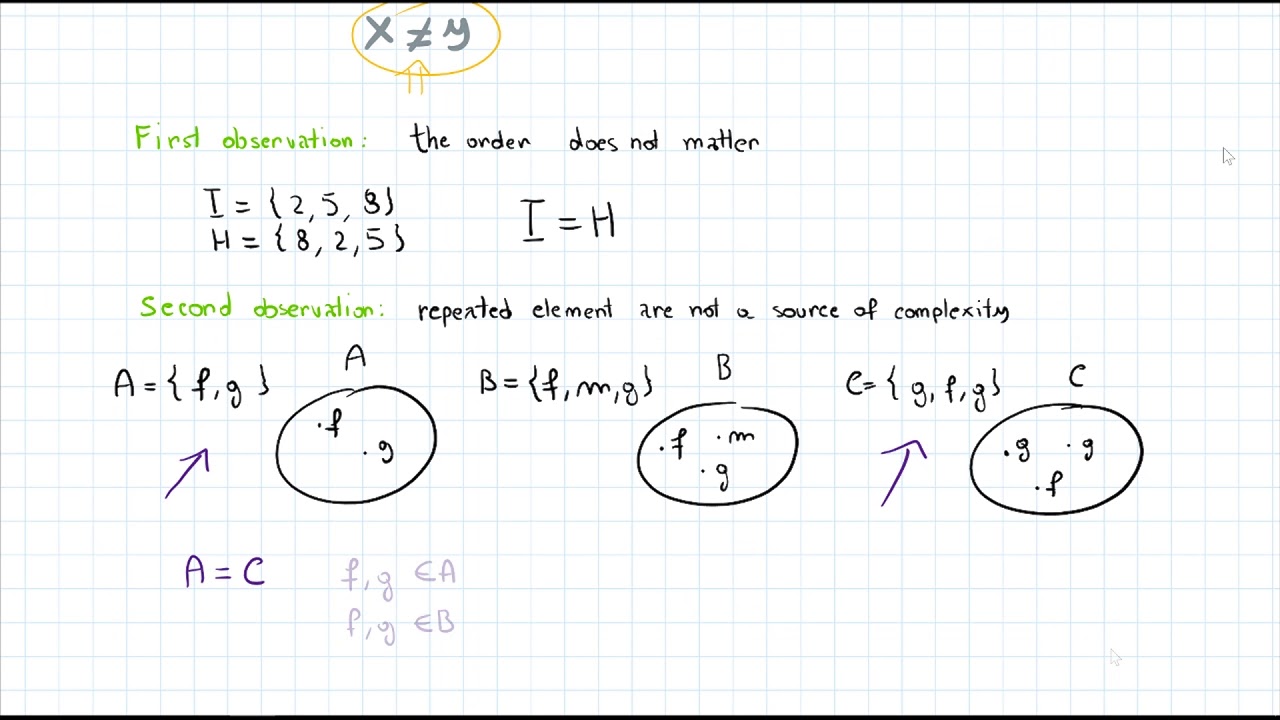 x ≠ y
First observation: the order does not matter
I = {2, 5, 8}
H = {8, 2, 5}
I = H
Second observation: repeated element are not a source of complexity
A = { f, g }
A
f
g
B = {f, m, g}
B
f
m
g
C = { g, f, g}
C
g
g
f
A = C
f, g ∈ A
f, g ∈ B